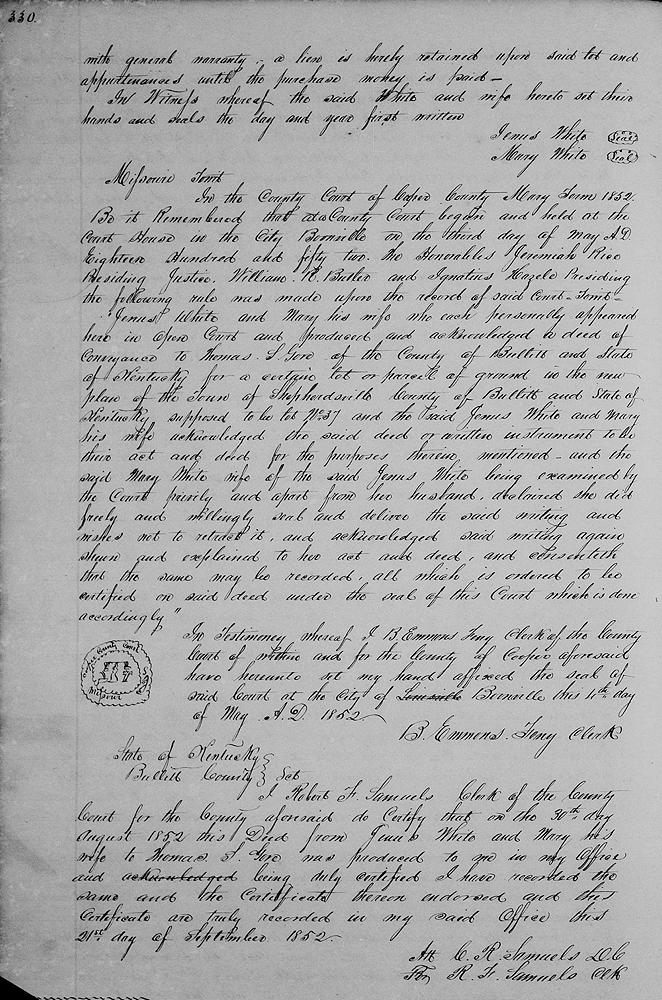 330.
with general warranty. a lien is hereby retained upon said lot and
appurtenances until the purchase money is paid —
In Witness whereof the said White and wife hereto set their
hands and seals the day and year first written
Jenus White Seal
Mary White Seal
Missouri Towit
In the County Court of Cooper County May Term 1852.
Be it Remembered that County Court began and held at the
Court House in the City Boonville on the third day of May A.D.
Eighteen Hundred and fifty two. The Honorables Jeremiah Rice
Presiding Justice, William. R. Butler and Ignatius Hazele Presiding
the following rule was made upon the record of said Court – Towit –
"Jenus White and Mary his wife who each personally appeared
here in Open Court and produced and acknowledged a deed of
Conveyance to Thomas. S Gore of the County of Bullitt and State
of Kentucky for a certain lot or parcell of ground in the new
plan of the Town of Shepherdsville County of Bullitt and State of
Kentucky supposed to be lot No 37 and the said Jenus White and Mary
his wife acknowledged the said deed or written instrument to be
their act and deed for the purposes therein mentioned – and the
said Mary White wife of the said Jenus White being examined by
the Court privily and apart from her husband, declaired she did
freely and willingly seal and deliver the said writing and
wishes not to retract it, and acknowledged said writing again
shewn and explained to her act and deed, and consenteth
that the same may be recorded, all which is ordered to be
certified on said deed under the seal of this Court which is done
accordingly"
In Testimoney whereof I B. Emmons Ferry Clerk of the County
Court of within and for the County of Cooper aforesaid
have hereunto set my hand affixed the seal of
said Court at the City of Louisville Boonville this 4th day
of May A.D. 1852
Cooper County Court Missouri
B. Emmons. Ferry Clerk
State of Kentucky
Bullitt County } Sct
I Robert F. Samuels Clerk of the County
Court for the County aforesaid do Certify that on the 30th day
August 1852 this Deed from Jenus White and Mary his
wife to Thomas. S. Gore was produced to me in my Office
and acknowledged being duly certified I have recorded the
same and the Certificate thereon endorsed and this
Certificate are truly recorded in my said Office this
21st day of September 1852 –
Att C. R. Samuels D.C
For R. F. Samuels Clk